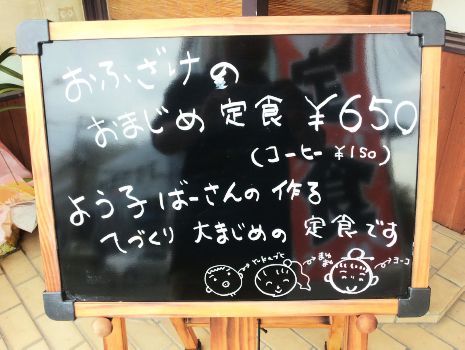 おふざけの
おまじめ定食 ¥650
(コーヒー ¥150)
よう子ばーさんの作る
てづくり 大まじめの 定食です
ヨーコ